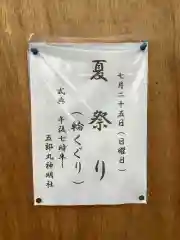 七月二十五日（日曜日）
夏祭り
（輪くぐり）
式典　午後七時半～
五郎丸神明社